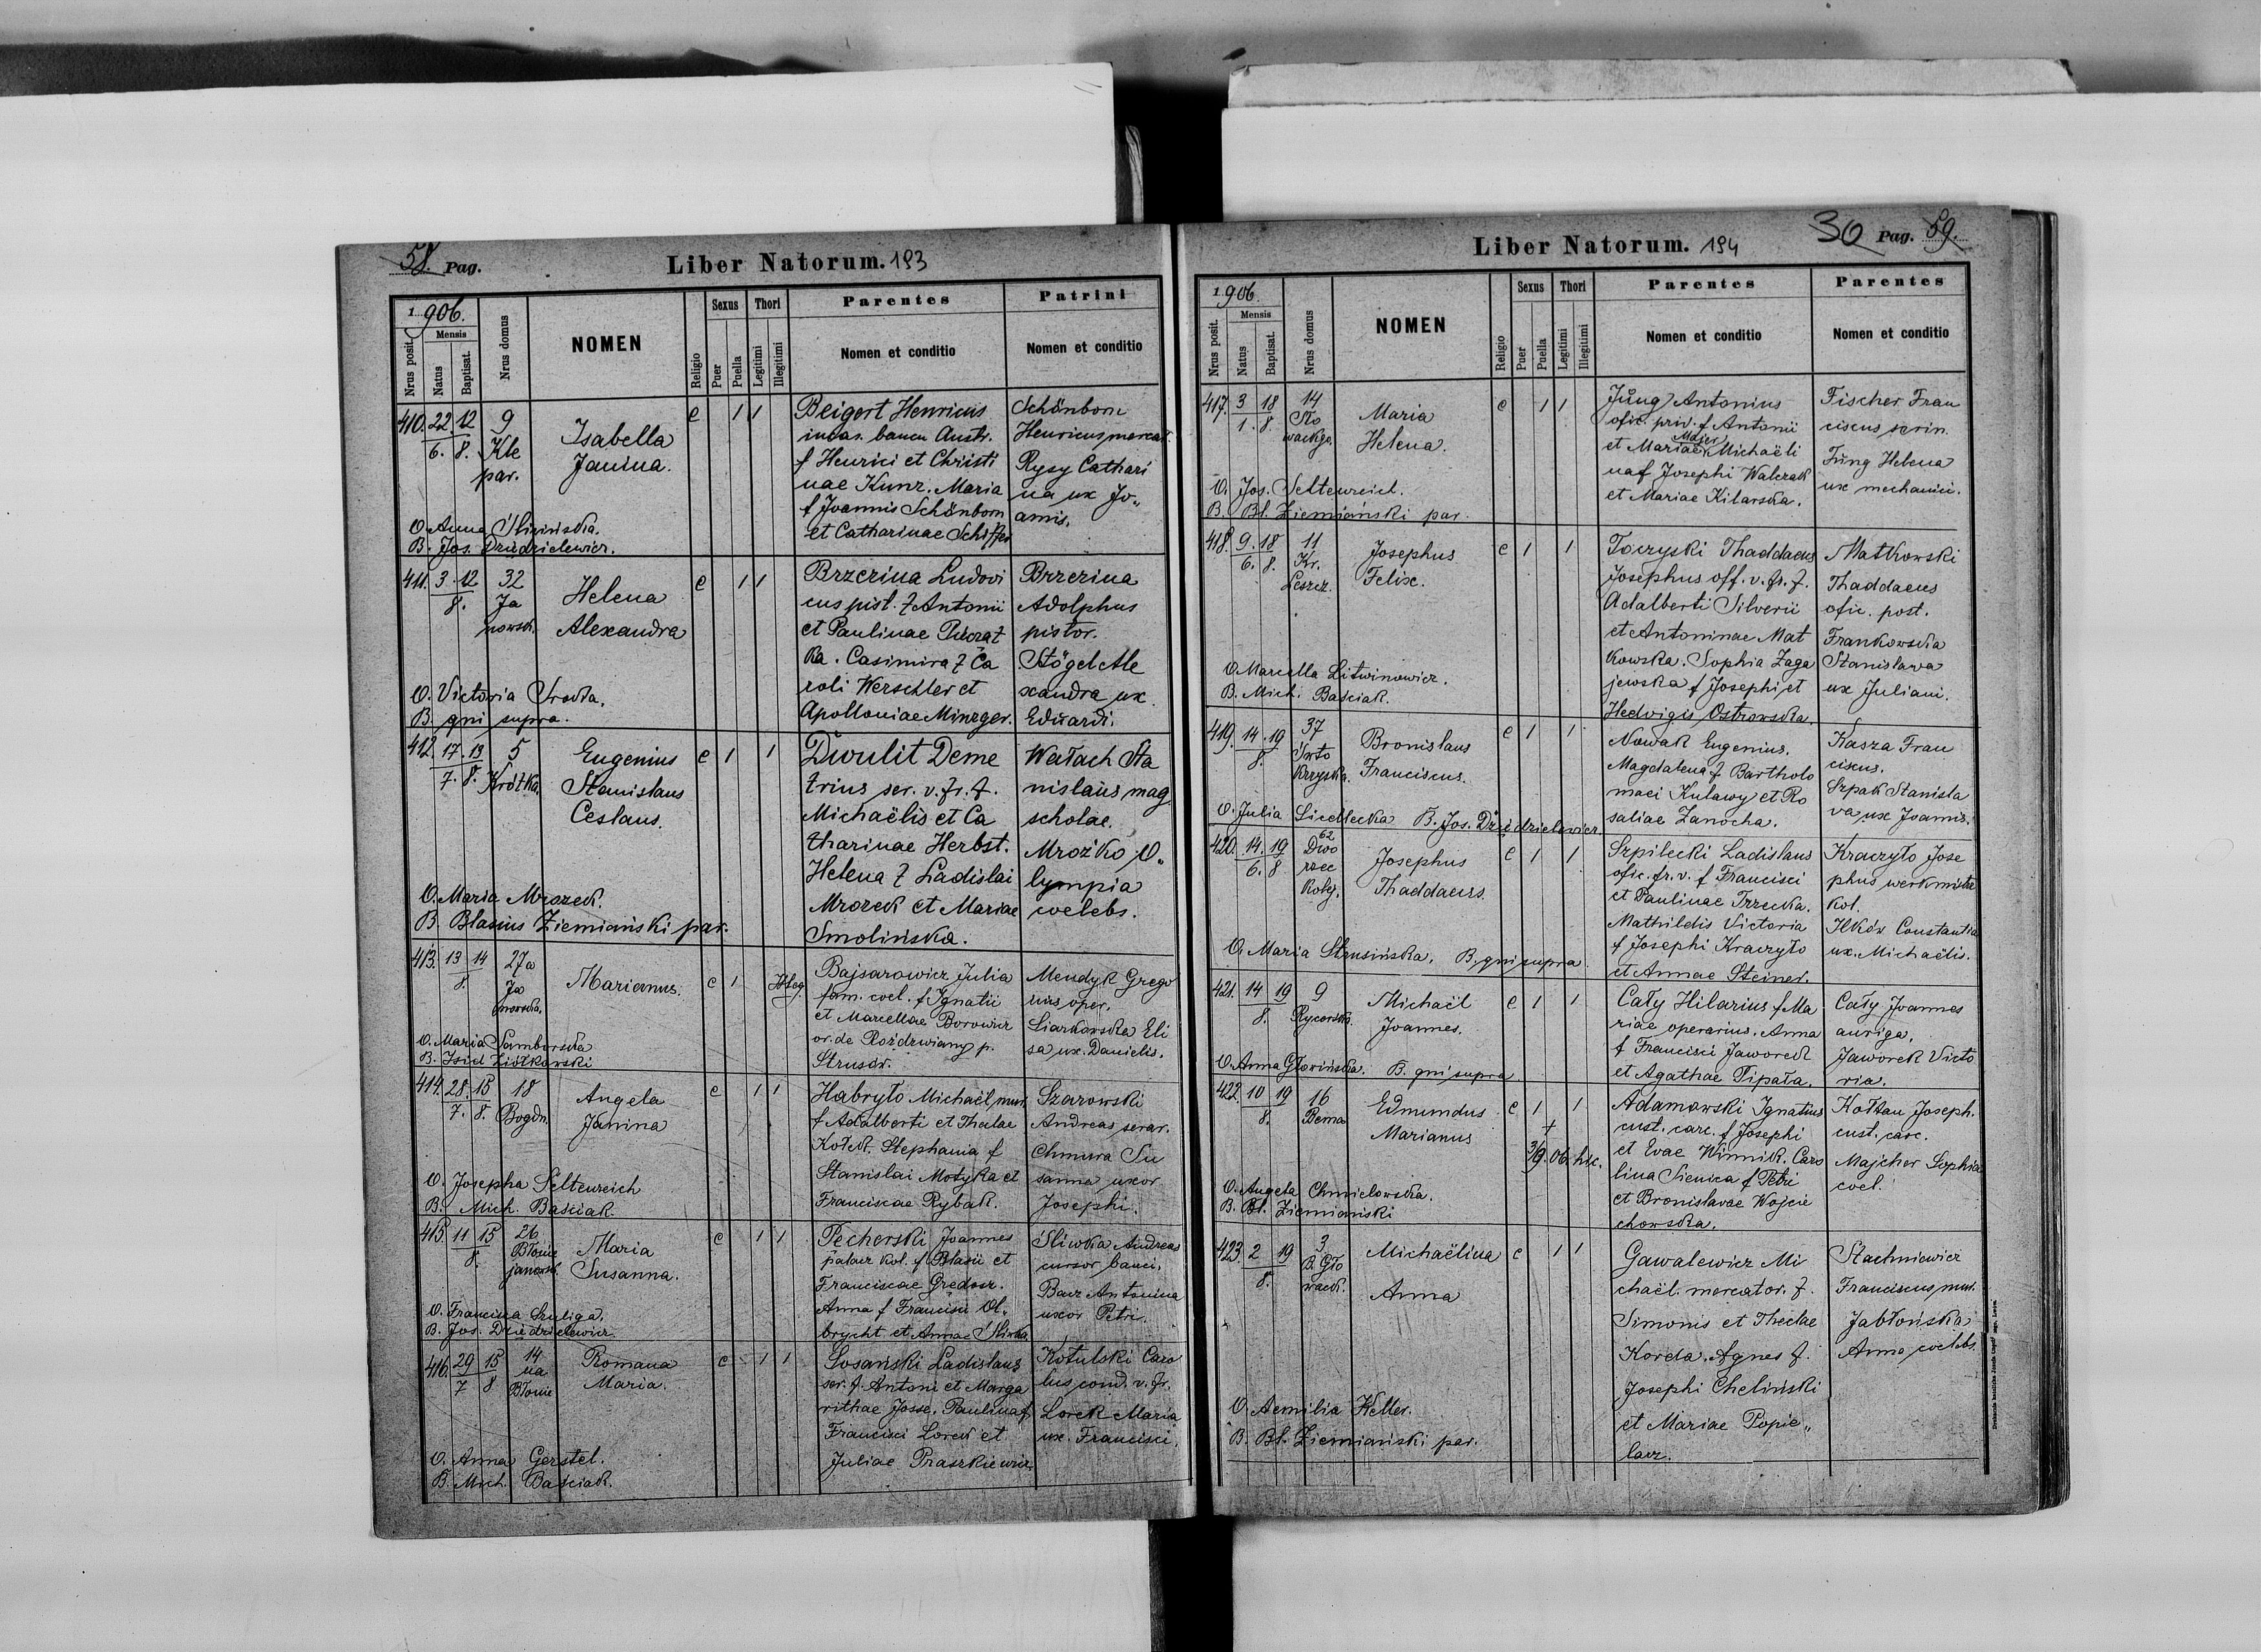 58. Pag.
Liber Natorum. 193
1906.
Nrus posit.
Mensis
Natus
Baptisat.
Nrus domus
NOMEN
Religio
Sexus
Puer
Puella
Thori
Legitimi
Illegitimi
Parentes
Nomen et conditio
Patrini
Nomen et conditio
410. 22. 12 9
6. 8. Kle
par.
Isabella
Janina.
c 1 1
Beigert Henricus
incas. bancu Austr.
f Henrici et Christi
nae Kunz. Maria
f Joannis Schönborn
et Catharinae Schiffer
Schönborn
Henricus mercat.
Rysy Cathari
na ux Jo„
amis.
O. Anna Śliwińska.
B. Jos. Dziedzielewicz.
411. 3. 12 32
8. Ja
nowsk.
Helena
Alexandra
c 1 1
Brzezina Ludovi
cus pist. f Antonii
et Paulinae
ka. Casimira f Ca
roli Werschler et
Apolloniae Minzger.
Brzezina
Adolphus
pistor.
Stögel Ale
xandra ux
Eduardi.
O. Victoria Srocka.
B. qui supra.
412. 17. 13 5
7. 8. Krótka.
Eugenius
Stanislaus
Ceslaus.
c 1 1
Dwulit Deme
trius ser. v. fr. f.
Michaëlis et Ca
tharinae Herbst.
Helena f Ladislai
Mrozek et Mariae
Smolińska.
Wałach Sta
nislaus mag.
scholae.
Mrożko O„
lympia
coelebs.
O. Maria Mrozek.
B. Blasius Ziemiański par.
413. 13 14 27a
8. Ja
nowska.
Marianus.
c 1 Illeg.
Bajsarowicz Julia
fam. coel. f Ignatii
et Marcellae Borowicz
or. de Roźdzwiany p.
Strusów.
Mendyk Grego
rius oper.
Siarkowska Eli
sa ux. Danielis.
O. Maria Samborska
B. Isid Ziółkowski
414. 28. 15 18
7. 8. Bogdn.
Angela
Janina
c 1 1
Habryło Michaël mur.
f Adalberti et Theclae
Kołek. Stephania f
Stanislai Motyka et
Franciscae Rybak.
Szarowski
Andreas serar.
Chmura Su
sanna uxor
Josephi.
O. Josepha Seltenreich
B. Mich. Baściak.
415. 11 15 26
8. Błonie
janowsk.
Maria
Susanna.
c 1 1
Pecherski Joannes
palacz kol. f Blasii et
Franciscae Gredosz.
Anna f Francisci Ol„
brycht et Annae Śliwka
Śliwka Andreas
cursor banci.
Bacz Antonina
uxor Petri.
O. Francisca Szuliga.
B. Jos. Dziedzielewicz.
416. 29 15 14
7 8 na
Błonie
Romana
Maria.
c 1 1
Sosański Ladislaus
ser. f. Antoni et Marga
rithae Josse. Paulina f
Francisci Lorek et
Juliae Praszkiewicz.
Kotulski Caro
lus cond. v. fr.
Lorek Maria
ux. Francisci.
O. Anna Gerstel.
B. Mich. Baściak.
Liber Natorum. 194
30 Pag. 59.
1906.
Nrus posit.
Mensis
Natus
Baptisat.
Nrus domus
NOMEN
Religio
Sexus
Puer
Puella
Thori
Legitimi
Illegitimi
Parentes
Nomen et conditio
Parentes
Nomen et conditio
417. 3 18 14
1. 8. Sło
wackgo.
Maria
Helena.
c 1 1
Jüng Antonius
ofic. priv. f Antonii
et Mariae Majer Michaëli
na f Josephi Walczak
et Mariae Kilarska.
Fischer Fran
ciscus scrin.
Jüng Helena
ux mechanici.
O. Jos. Seltenreich.
B. Bl. Ziemiański par.
418. 9. 18 11
6. 8. Kr.
Leszcz.
Josephus
Felix.
c 1 1
Toczyski Thaddaeus
Josephus off. v. fr. f.
Adalberti Silverii
et Antoninae Mat
kowska. Sophia Zaga
jewska f Josephi et
Hedvigis Ostrowska.
Matkowski
Thaddaeus
ofic. post.
Frankowska
Stanislava
ux Juliani.
O. Marcella Litwinowicz.
B. Mich. Baściak.
419. 14. 19 37
8. Święto
krzyska.
Bronislaus
Franciscus.
c 1 1
Nowak Eugenius.
Magdalena f Bartholo
maei Kulawy et Ro
saliae Zanocha.
Kasza Fran
ciscus.
Szpak Stanisla
va ux Joannis.
O. Julia Siedlecka B. Jos. Dziedzielewicz
420. 14. 19 62
6. 8 Dwo
rzec
kolej.
Josephus
Thaddaeus
c 1 1
Szpilecki Ladislaus
ofic. fr. v. f Francisci
et Paulinae Trzecka.
Mathildis Victoria
f Josephi Kraczyło
et Annae Steiner.
Kraczyło Jose
phus werkmistz
kol.
Ilków Constantia
ux. Michaëlis.
O. Maria Strusińska. B. qui supra
421. 14 19 9
8. Rycerska.
Michaël
Joannes.
c 1 1
Cały Hilarius f Ma
riae operarius. Anna
f Francisci Jaworek
et Agathae Pipała.
Cały Joannes
auriga.
Jaworek Victo
ria.
O. Anna Głowińska. B. qui supra.
422. 10 19 16
8. Bema
Edmundus
Marianus
c 1 1
+
3/9. 06. hic.
Adamowski Ignatius
cust. carc. f Josephi
et Evae Winnik. Caro
lina Sienica f Petri
et Bronislavae Wojcie
chowska.
Kołtan Joseph.
cust. carc.
Majcher Sophia
coel.
O. Angela Chmielowska.
B. Bl. Ziemiański
423. 2 19 3
8. B. Gło
wack.
Michaëlina
Anna
c 1 1
Gawalewicz Mi
chaël. mercator. f.
Simonis et Theclae
Korda. Agnes f.
Josephi Cheliński
et Mariae Popie„
larz.
Stachniewicz
Franciscus mur.
Jabłońska
Anna coelebs.
O. Aemilia Keller.
B. Bl. Ziemiański par.